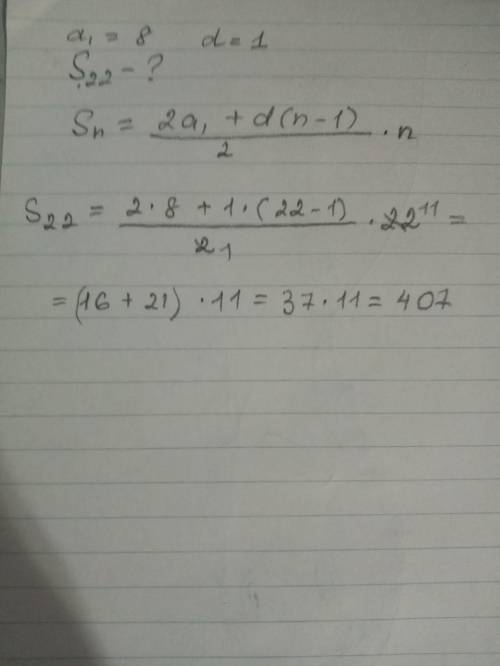 a₁ = 8 d = 1
S₂₂ - ?
Sₙ = (2a₁ + d(n-1))/2 · n
S₂₂ = (2·8 + 1·(22-1))/2 1 · 22 11 =
= (16 + 21) · 11 = 37 · 11 = 407